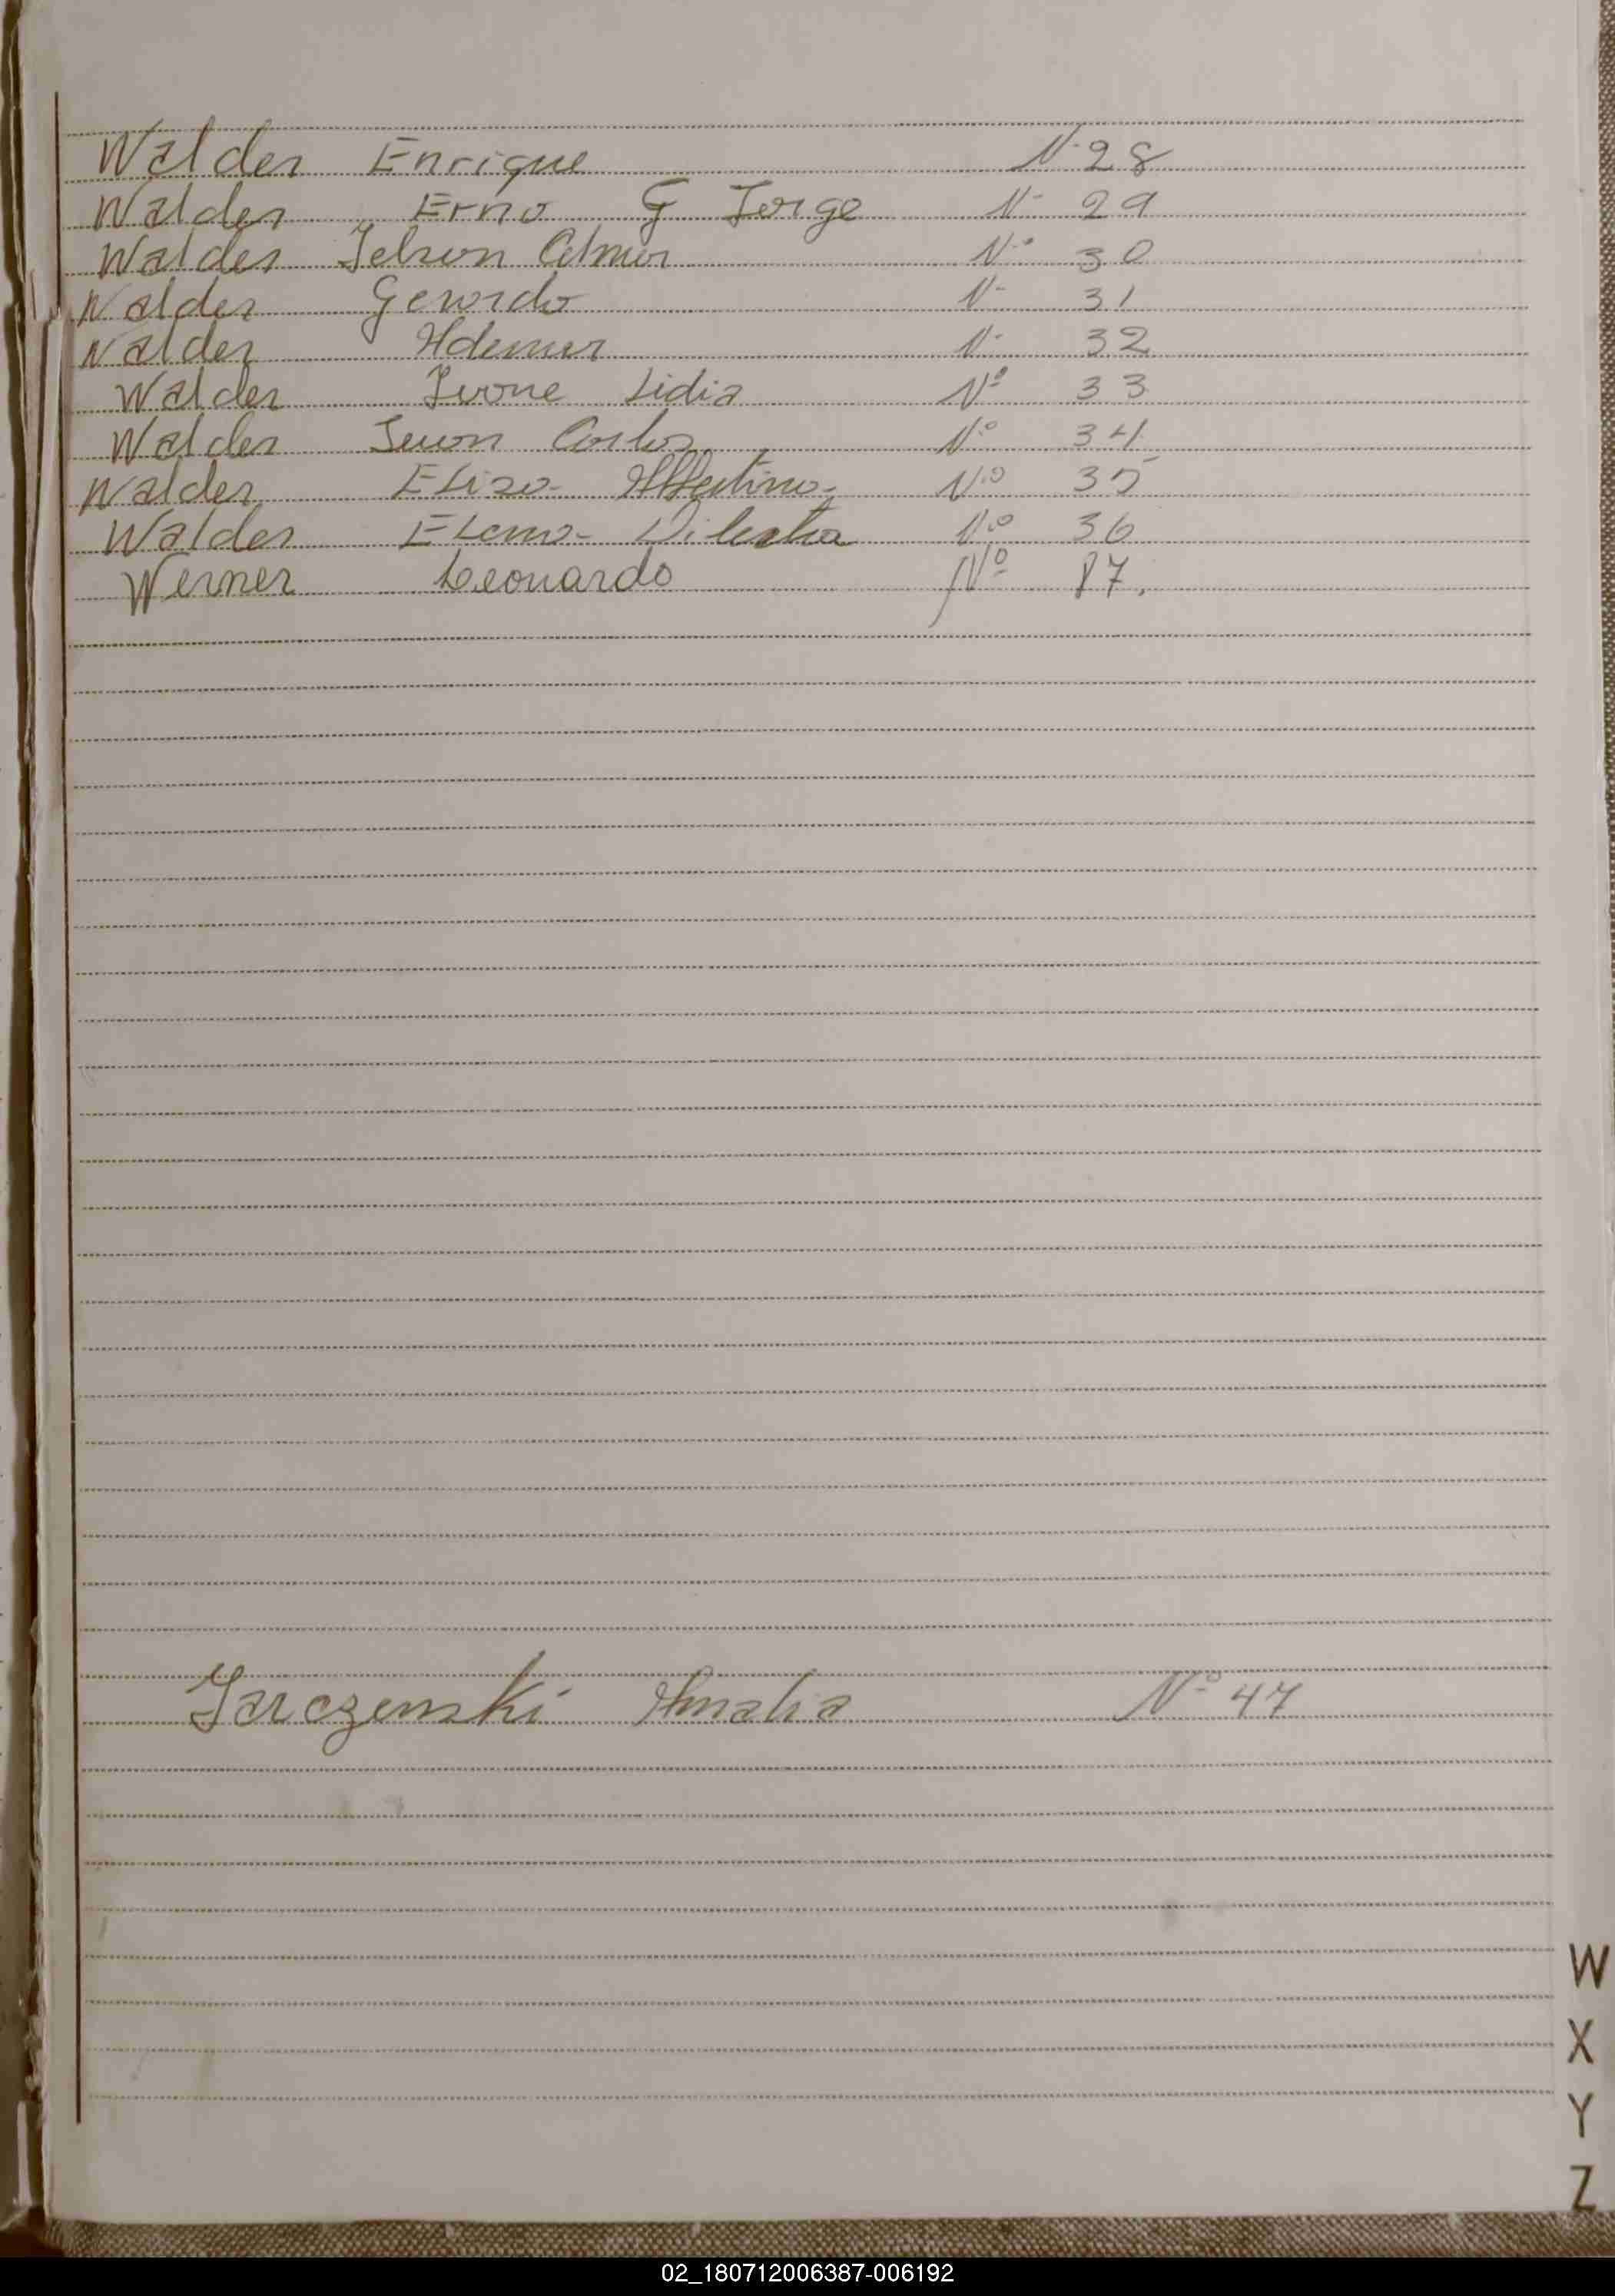 Walder Enrique N. 28
Walder Erno G Jorge N- 29
Walder Nº 30
Walder Gerardo N- 31
Walder Ademar N- 32
Walder Ivone Lidia Nº 33
Walder Juan Carlos Nº 34
Walder Eliza Albertina Nº 35
Walder Elena Nº 36
Werner Leonardo Nº 87.
Amalia Nº 47
W
X
Y
Z
02_180712006387-006192